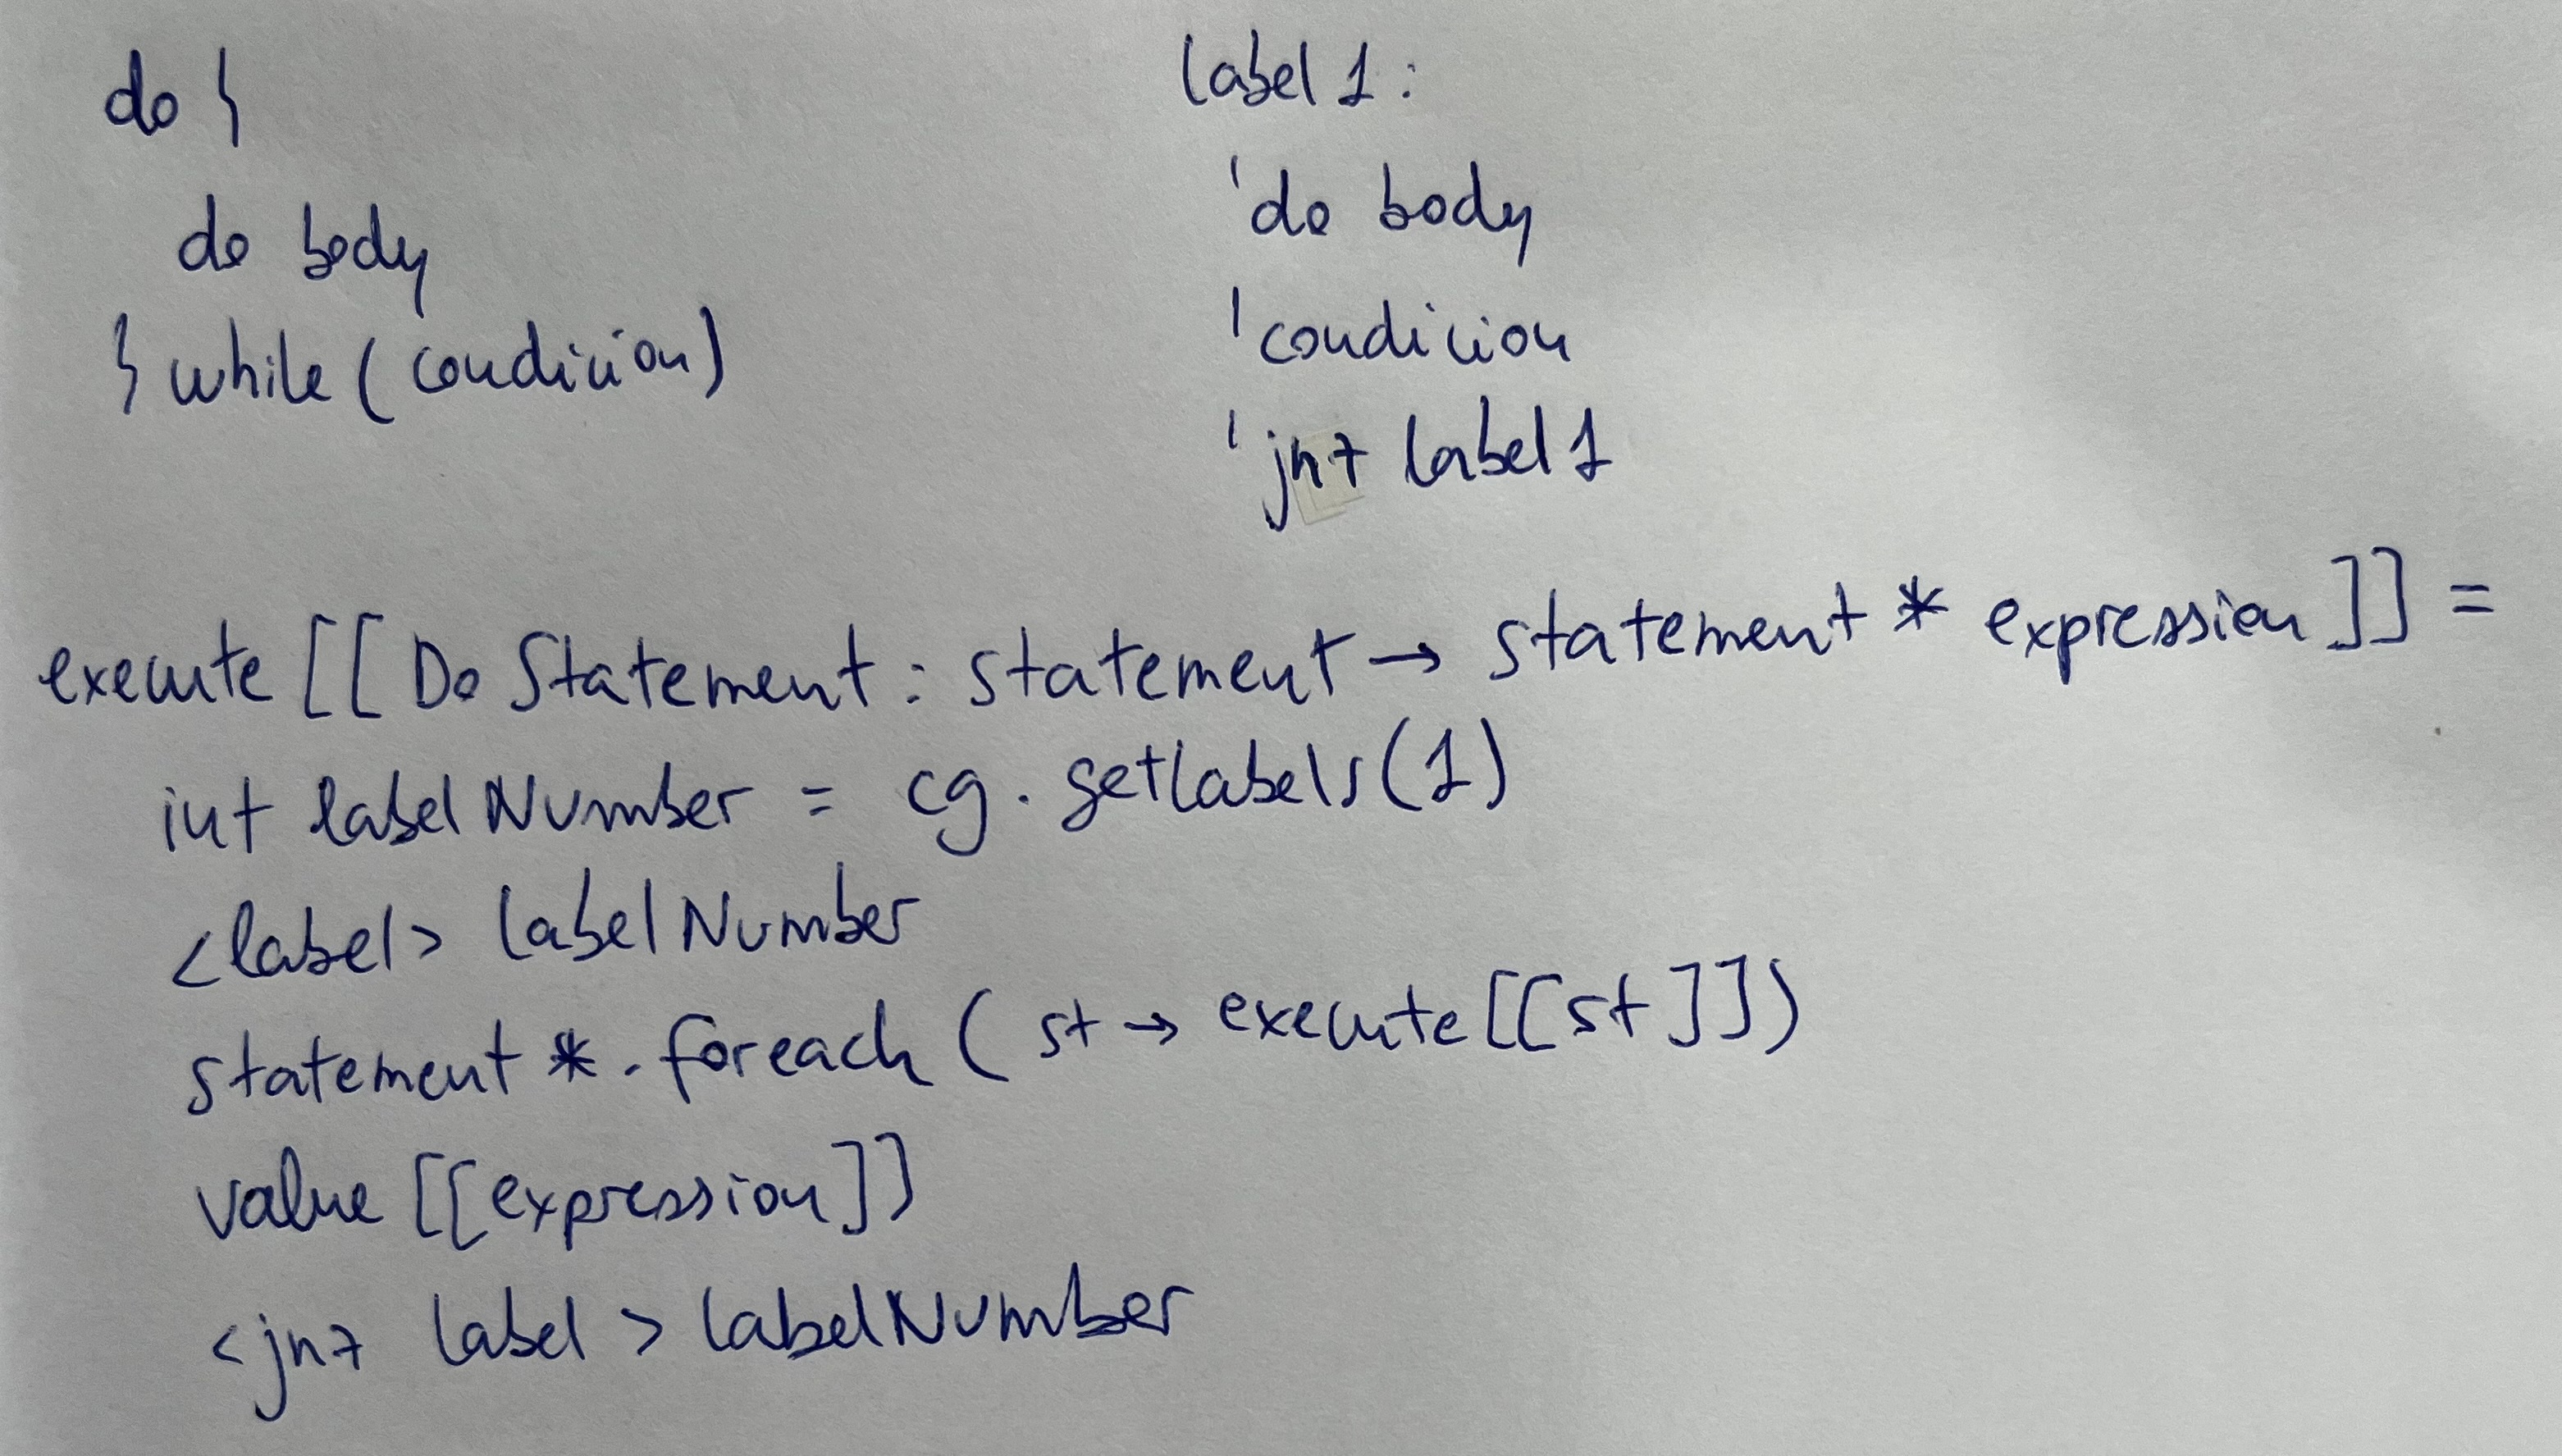 do {
do body
} while (condicion)
label 1:
'do body
'condicion
'jnz label 1
execute [[ Do Statement : statement → statement * expression ]] =
int label Number = cg. getlabels(1)
<label> label Number
statement *. foreach ( st → execute [[ st ]])
value [[ expression ]]
<jnz label > labelNumber